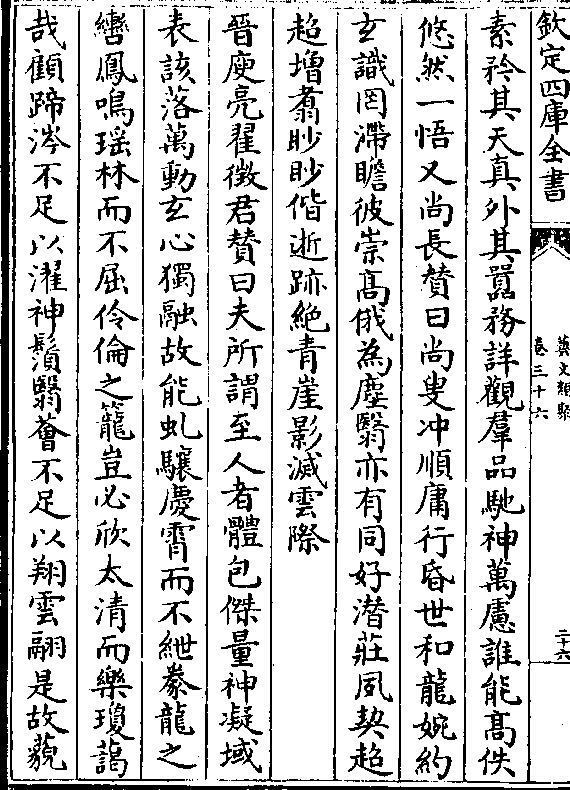 欽定四庫全書
藝文類聚
卷三十六
二十六
素矜其天真外其囂務詳觀羣品馳神萬慮誰能髙佚
悠然一悟又尚長贊曰尚叟冲順庸行昏世和龍婉約
玄識罔滯瞻彼崇髙俄為塵翳亦有同好潜莊夙契超
超増翥眇眇偕逝跡絶青崖影滅雲際
晉庾亮翟徵君贊曰夫所謂至人者體包傑量神凝域
表該落萬動玄心獨融故能虬驤慶霄而不紲豢龍之
轡鳳鳴瑶林而不屈伶倫之籠豈必欣太清而樂瓊藹
哉顧蹄涔不足以濯神鬚翳薈不足以翔雲翮是故藐